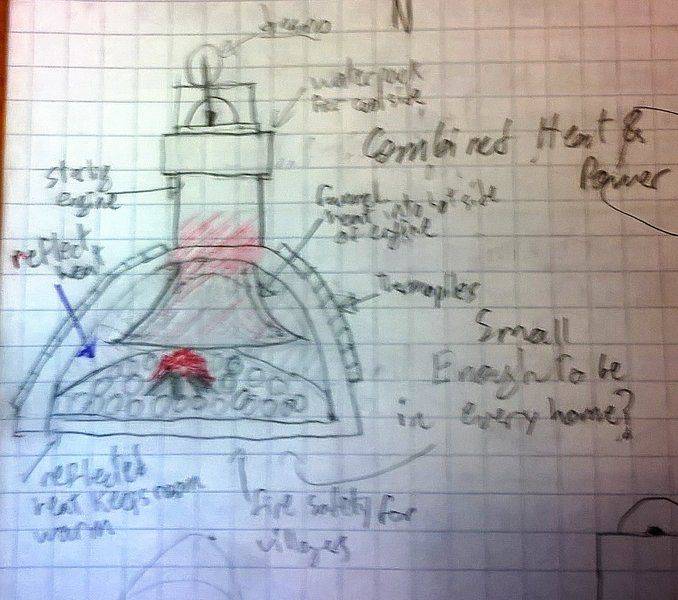 N
dynamo
waterjack
for coolside
Combined Heat &
Power
engine
funnel into hot side
heat
of engine
reflect
heat
Small
Enough to be
in every home?
reflected
heat keeps room
warm
fire safety for
villages